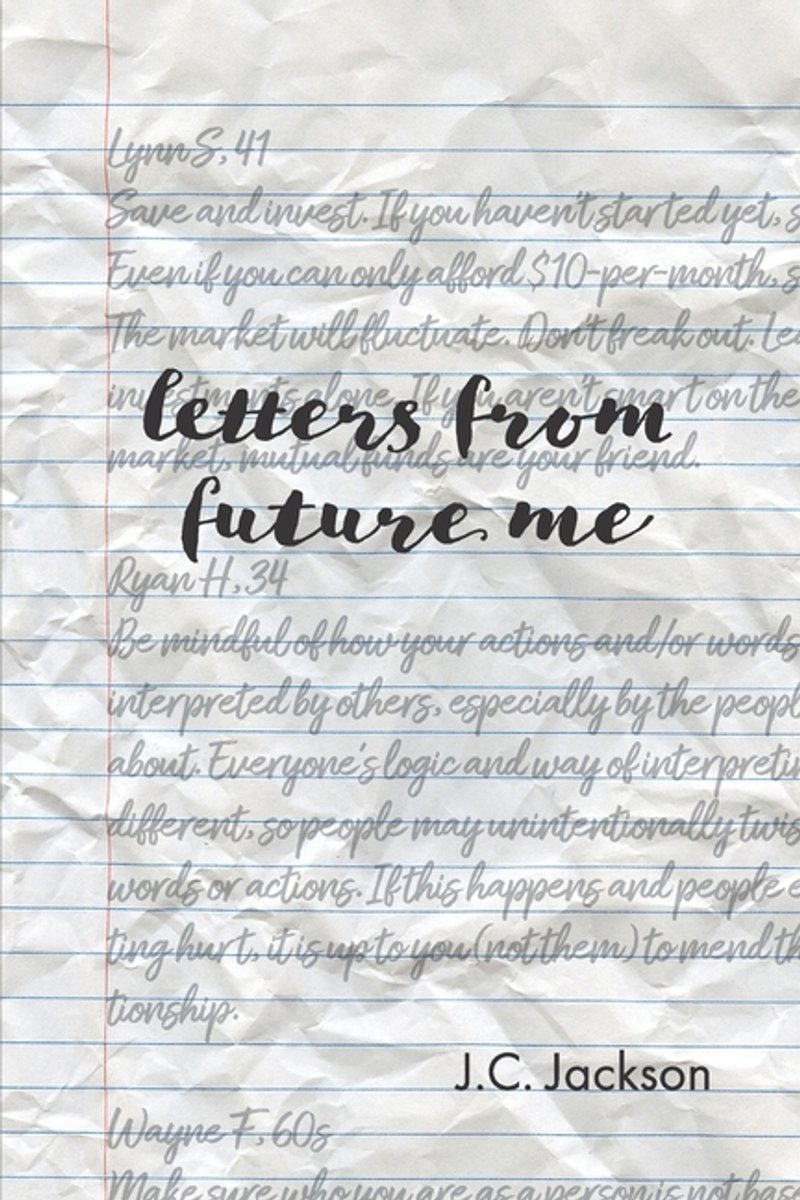 Lynn S, 41
Save and invest. If you haven't started yet, s
Even if you can only afford $10-per-month, s
The market will fluctuate. Don't freak out. Lea
investments alone. If you aren't smart on the
letters from
market, mutual funds are your friend.
future me
Ryan H, 34
Be mindful of how your actions and/or words
interpreted by others, especially by the peopl
about. Everyone's logic and way of interpretin
different, so people may unintentionally twis
words or actions. If this happens and people e
ting hurt, it is up to you (not them) to mend th
tionship.
J.C. Jackson
Wayne F, 60s
Make sure who you are as a person is not bas